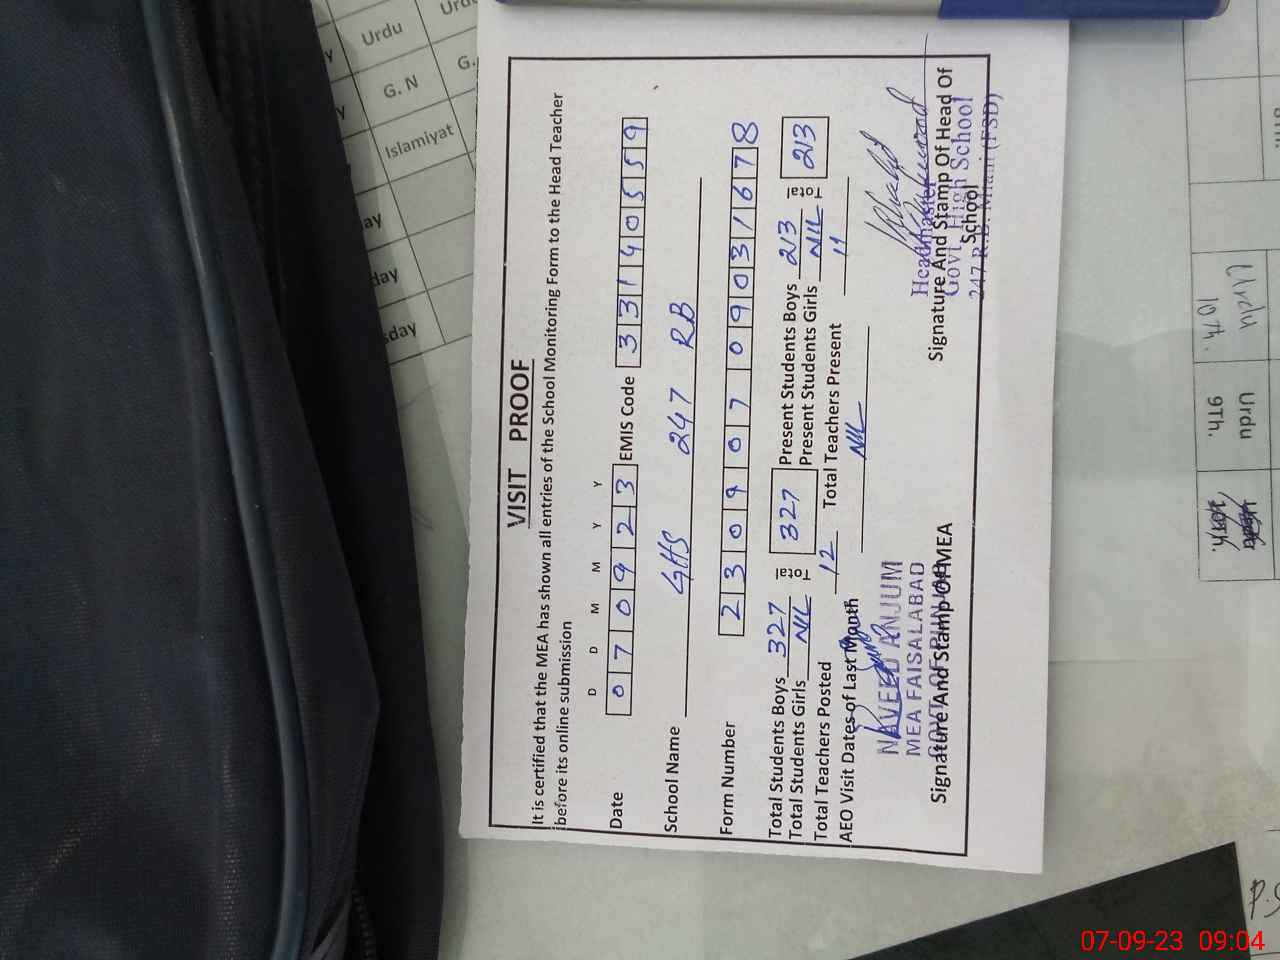 VISIT PROOF
It is certified that the MEA has shown all entries of the School Monitoring Form to the Head Teacher
before its online submission
D D M M Y Y
Date 0 7 0 9 2 3 EMIS Code 3 3 1 4 0 5 5 9
School Name GHS 247 RB
Form Number 2 3 0 9 0 7 0 9 0 3 1 6 7 8
Total Students Boys 327 Total 327 Present Students Boys 213 Total 213
Total Students Girls NIL Present Students Girls NIL
Total Teachers Posted 12 Total Teachers Present 11
AEO Visit Dates of Last Month NIL
NAVEED ANJUM
MEA FAISALABAD
GOVT OF PUNJAB
Signature And Stamp Of MEA
Khalid
Headmaster
Govt. High School
247 R.B. (FSD)
Signature And Stamp Of Head Of
School
Urdu Urdu
G. N G.
Islamiyat
ay
day
sday
Urdu
10th.
Urdu
9Th.
07-09-23 09:04